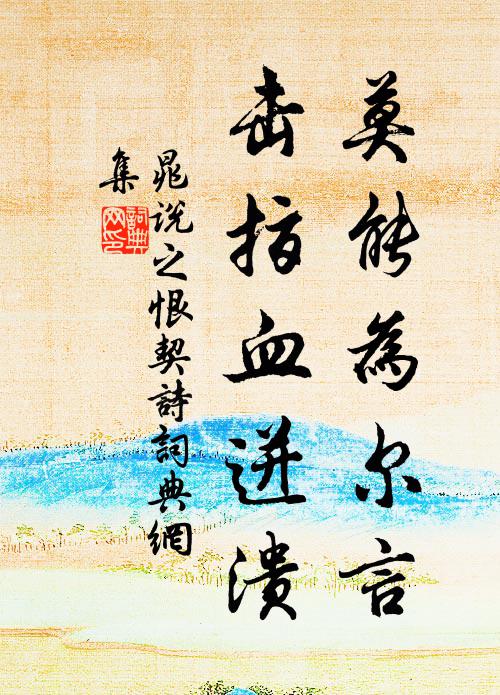 莫能為尔言
击指血迸潰
晁說之恨契詩詞典網
集
詞典
网印